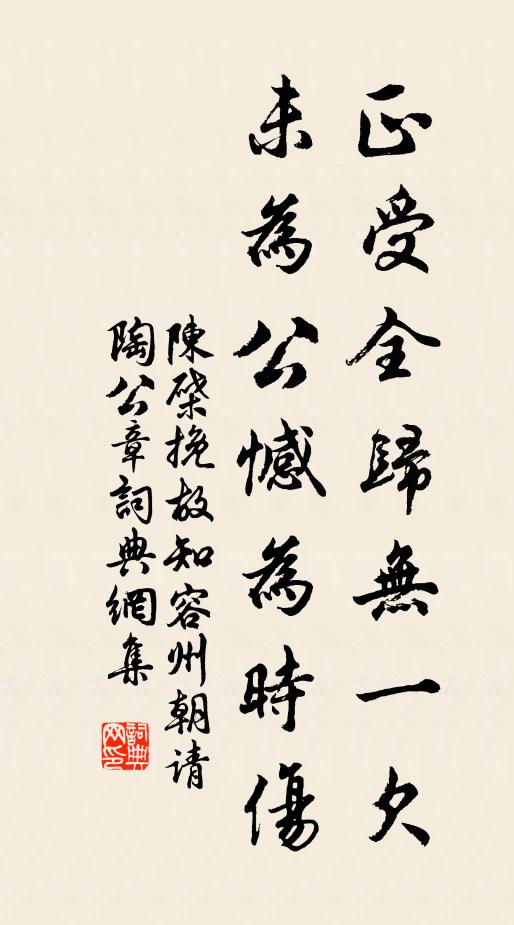 正受全歸無一欠
未為公憾為時傷
陳檗挽故知容州朝请
陶公章詞典網集
詞典網印